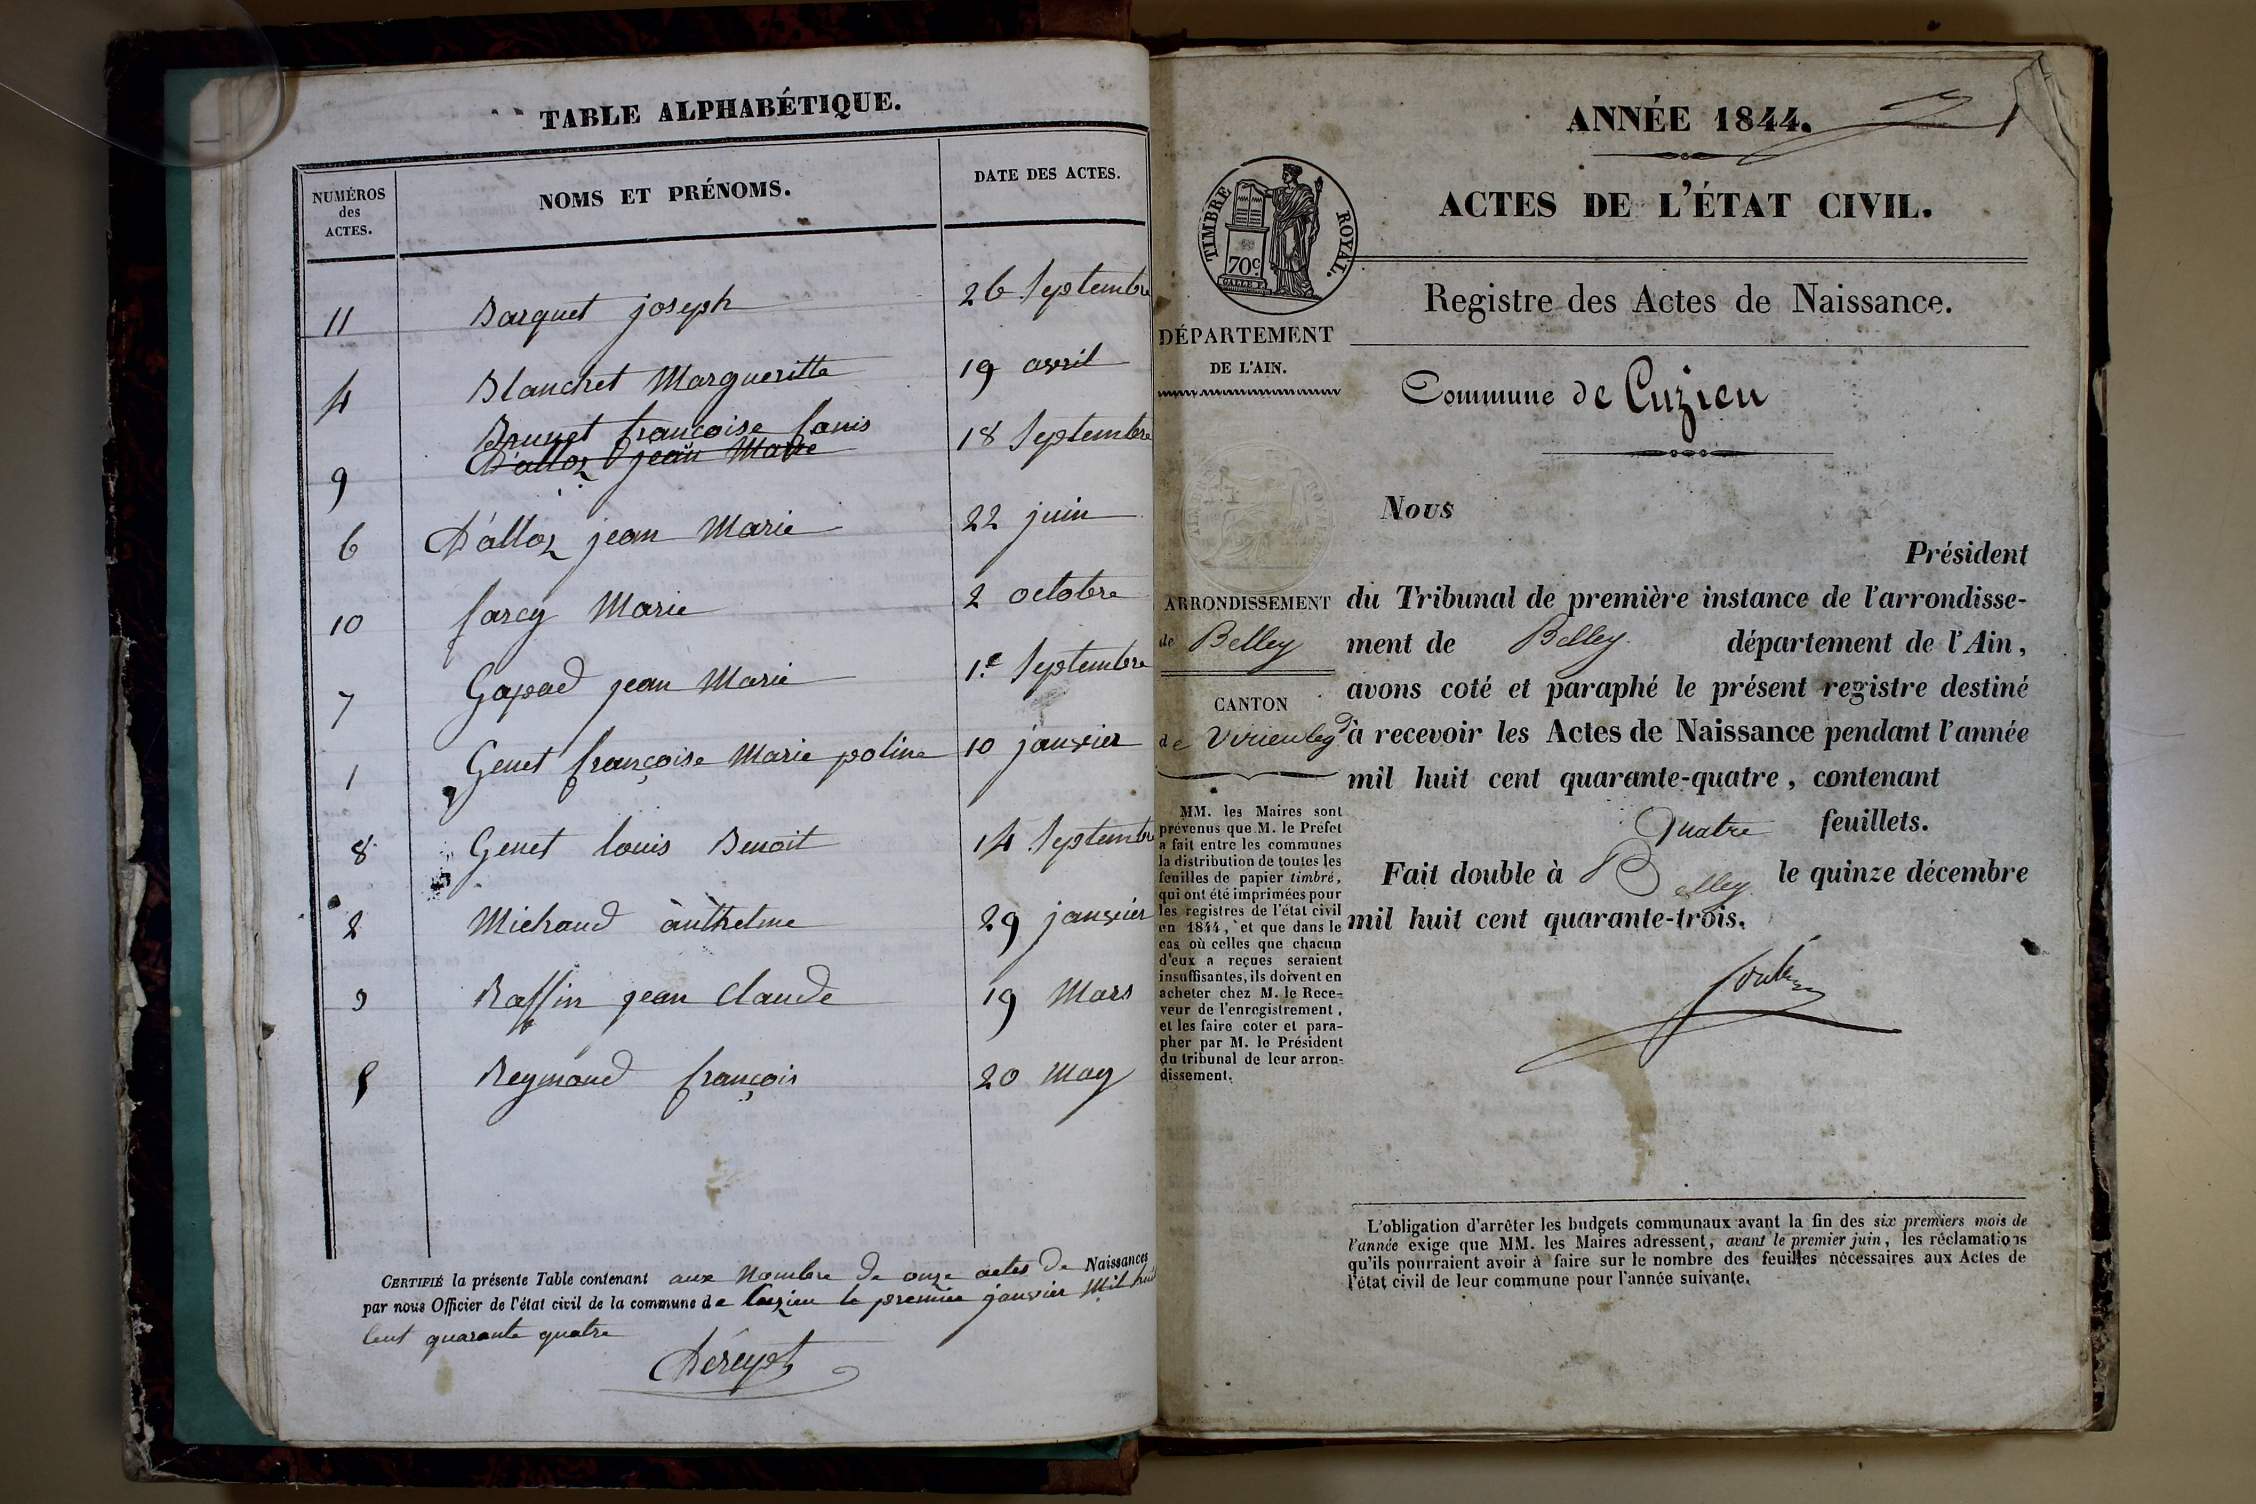 TABLE ALPHABÉTIQUE.
NUMÉROS
des
ACTES.
NOMS ET PRÉNOMS.
DATE DES ACTES.
11 Barquet joseph 26 Septembre
4 Blanchet Margueritte 19 avril
Brunet françoise fanis 18 Septembre
9 D'alloz jean Marie
6 D'alloz jean Marie 22 juin
10 farcy Marie 2 octobre
7 Gapad jean Marie 1.e Septembre
1 Genet françoise Marie poline 10 janvier
8 Genet louis Benoit 14 Septembre
2 Michaud ànthelme 29 janvier
3 Raffin jean Claude 19 Mars
5 Reymond françois 20 May
CERTIFIÉ la présente Table contenant aux Nombre de onze actes de Naissances
par nous Officier de l'état civil de la commune de Cuzieu le premier janvier Mil huit
Cent quarante quatre
ANNÉE 1844.
1
ACTES DE L'ÉTAT CIVIL.
TIMBRE ROYAL.
70c
Registre des Actes de Naissance.
DÉPARTEMENT
DE L'AIN.
Commune de Cuzieu
Nous
Président
ARRONDISSEMENT
de Belley
CANTON
de Virieu leg d
du Tribunal de première instance de l'arrondisse-
ment de Belley département de l'Ain,
avons coté et paraphé le présent registre destiné
à recevoir les Actes de Naissance pendant l'année
mil huit cent quarante-quatre, contenant
Quatre feuillets.
Fait double à Belley le quinze décembre
mil huit cent quarante-trois.
MM. les Maires sont
prévenus que M. le Préfet
a fait entre les communes
la distribution de toutes les
feuilles de papier timbré,
qui ont été imprimées pour
les registres de l'état civil
en 1844, et que dans le
cas où celles que chacun
d'eux a reçues seraient
insuffisantes, ils doivent en
acheter chez M. le Rece-
veur de l'enregistrement,
et les faire coter et para-
pher par M. le Président
du tribunal de leur arron-
dissement.
L'obligation d'arrêter les budgets communaux avant la fin des six premiers mois de
l'année exige que MM. les Maires adressent, avant le premier juin, les réclamations
qu'ils pourraient avoir à faire sur le nombre des feuilles nécessaires aux Actes de
l'état civil de leur commune pour l'année suivante.